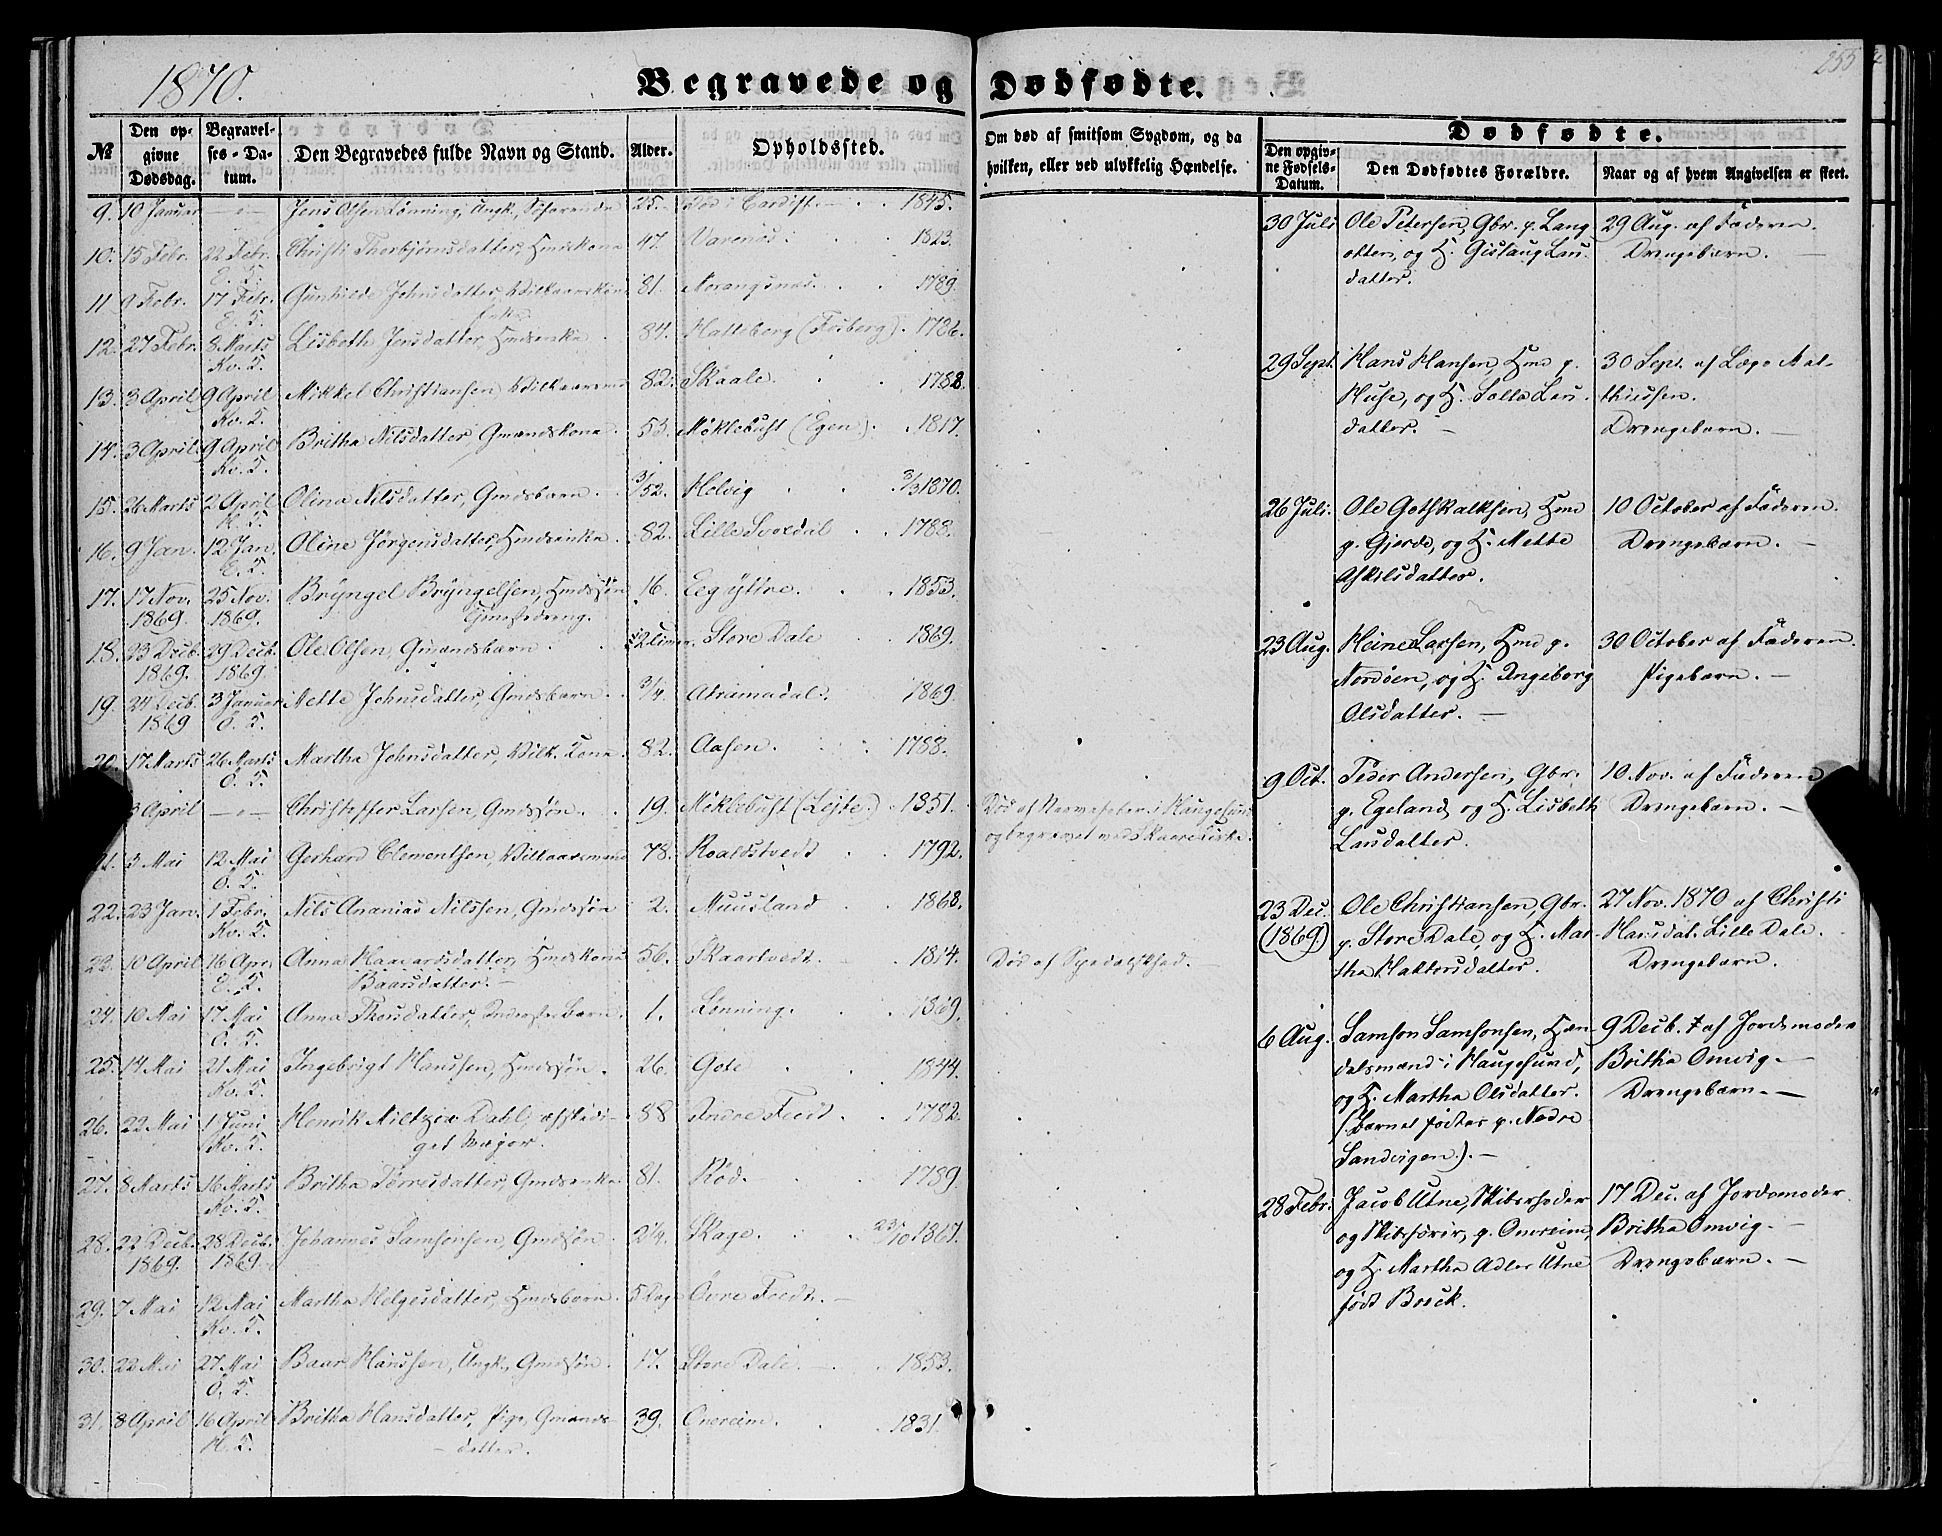 255
1870.
Begravede og Dødfødte.
№
Den opgivne Dødsdag.
Begravelses-Datum.
Den Begravedes fulde Navn og Stand.
Alder.
Opholdssted.
Om død af smitsom Sygdom, og da hvilken, eller ved ulykkelig Hændelse.
Dødfødte.
Den opgivne Fødsels-Datum.
Den Dødfødtes Forældre.
Naar og af hvem Angivelsen er skeet.
9. 10 Januar — Jens Olsen Lønning, Ungk., Søfarende 25. Død i Cardiff. 1845.
10. 15 Febr. 22 Febr. Christi Thorbjørnsdatter, Hmdskona 47. Varenes 1823.
E. K.
11 9 Febr. 17 Febr. Gunhilde Johnsdatter, Vilkaarskone 81. Norangsnes. 1789.
E. K.
12. 27 Febr. 8 Marts Lisbeth Jensdatter 84. Hatteberg (Fosberg). 1786.
Kv. K.
13. 3 April 9 April Mikkel Christiansen, Vilkaarsmd 82. Skaale. 1788.
Kv. K.
14. 3 April 9 April Britha Nilsdatter, Gmandskone 53. Møklebust (Egen). 1817.
Kv. K.
15. 26 Marts 2 April Olina Nilsdatter, Gmdsbarn. 3/52. Helvig 3/3 1870.
H. K.
16. 9 Jan. 12 Jan. Oline Jørgensdatter, Hmdsenke. 82. Lille Svoldal 1788.
E. K.
17. 17 Nov. 25 Nov. Bryngel Bryngelsen, Hmdssøn 16. Eeg yttre. 1853.
1869. 1869. Tjenestedreng.
18. 23 Decb. 29 Decb. Ole Olsen, Gmandsbarn. 12 Timer. Store Dale 1869.
1869. 1869.
19. 24 Decb. 3 Januar Mette Johnsdatter, Gmdsbarn. 3/4. Atramadal. 1869.
1869 Ø. K.
20. 17 Marts 26 Marts Martha Johnsdatter, Vilk. kone. 82. Aasen. 1788.
Ø. K.
3 April — Christoffer Larsen, Gmdssøn. 19. Møklebust (Lejte.) 1851. Død af Nervefeber i Haugesund
og begravet ved Skaare Kirke.
21. 3 Mai 12 Mai Gerhard Clementsen, Vilkaarsmand 78. Roaldstvedt 1792.
Ø. K.
22. 23 Jan. 1 Febr. Nils Ananias Nilssen, Gmdssøn 2. Muusland 1868.
Kv. K.
23. 10 April 16 Apr. Anna Haavardsdatter, Hmdskone 56. Skaartvedt. 1814. Død af Spedalskhed.
E. K. Baarsdatter.
24. 10 Mai 17 Mai Anna Thorsdatter, Inderstes Barn. 1. Lønning. 1869.
Ø. K.
25. 14 Mai 21 Mai Ingebrigt Hanssen, Hmdssøn. 26. Gete 1844.
Kv. K.
26. 22 Mai 1 Juni Henrik Miltzow Dahl, afskedi- 88 Indre Fedt. 1782.
Kv. K. get Major.
27. 8 Marts 16 Marts Britha Torresdatter, Gmdsenke 81. Rød. 1789
Kv. K.
28. 22 Decb. 28 Decb. Johannes Samsonsen, Gmdssøn. 2 1/4. Skage. 23/10 1867.
1869. 1869
29. 7 Mai 12 Mai Martha Helgesdatter, Hmdsbarn. 5 Dag. Øvre Fedt.
Kv. K.
30. 22 Mai 27 Mai Baar Hanssen, Ungk., Gmdssøn. 17. Store Dale. 1853.
Ø. K.
31. 8 April 16 April Britha Hansdatter, Pige, Gmands- 39. Omreim. 1831.
H. K. datter.
30 Juli Ole Petersen, Gbr. p. Lang- 29 Aug. af Faderen.
og H. Gislaug Lau- Drengebarn.
datter.
29 Sept. Hans Hansen, Hmd p. 30 Sept. af Læge Mat-
Huse, og H. Lau- thiessen.
datter. Drengebarn.
26 Juli. Ole Gotskalksen, Hmd 10 October af Faderen.
p. Gjerde, og H. Mette Drengebarn.
Askilsdatter.
23 Aug. Heine Larsen, Hmd p. 30 October af Faderen.
Nordøen, og H. Ingeborg Pigebarn.
Olsdatter.
9 Oct. Peder Andersen, Gbr. 10 Nov. af Faderen
p. Egeland, og H. Lisbeth Drengebarn.
Lausdatter.
23 Dec. Ole Christiansen, Gbr. 27 Nov. 1870 af Christi
(1869) p. Store Dale, og H. Mar- Hansdat. Lille Dale.
tha Haktorsdatter. Drengebarn.
6 Aug. Samson Samsonsen, Han- 9 Decb. af Jordemoder
delsmand i Haugesund, Britha Omvig.
og H. Martha Olsdatter. Drengebarn.
(Barnet født p. Nedre
Sandvigen).
28 Febr. Jacob Utne, Skibsrheder 17 Dec. af Jordemoder
og Skibsfører, p. Omreim, Britha Omvig.
og H. Martha Adler Utne Drengebarn.
født Boeck.